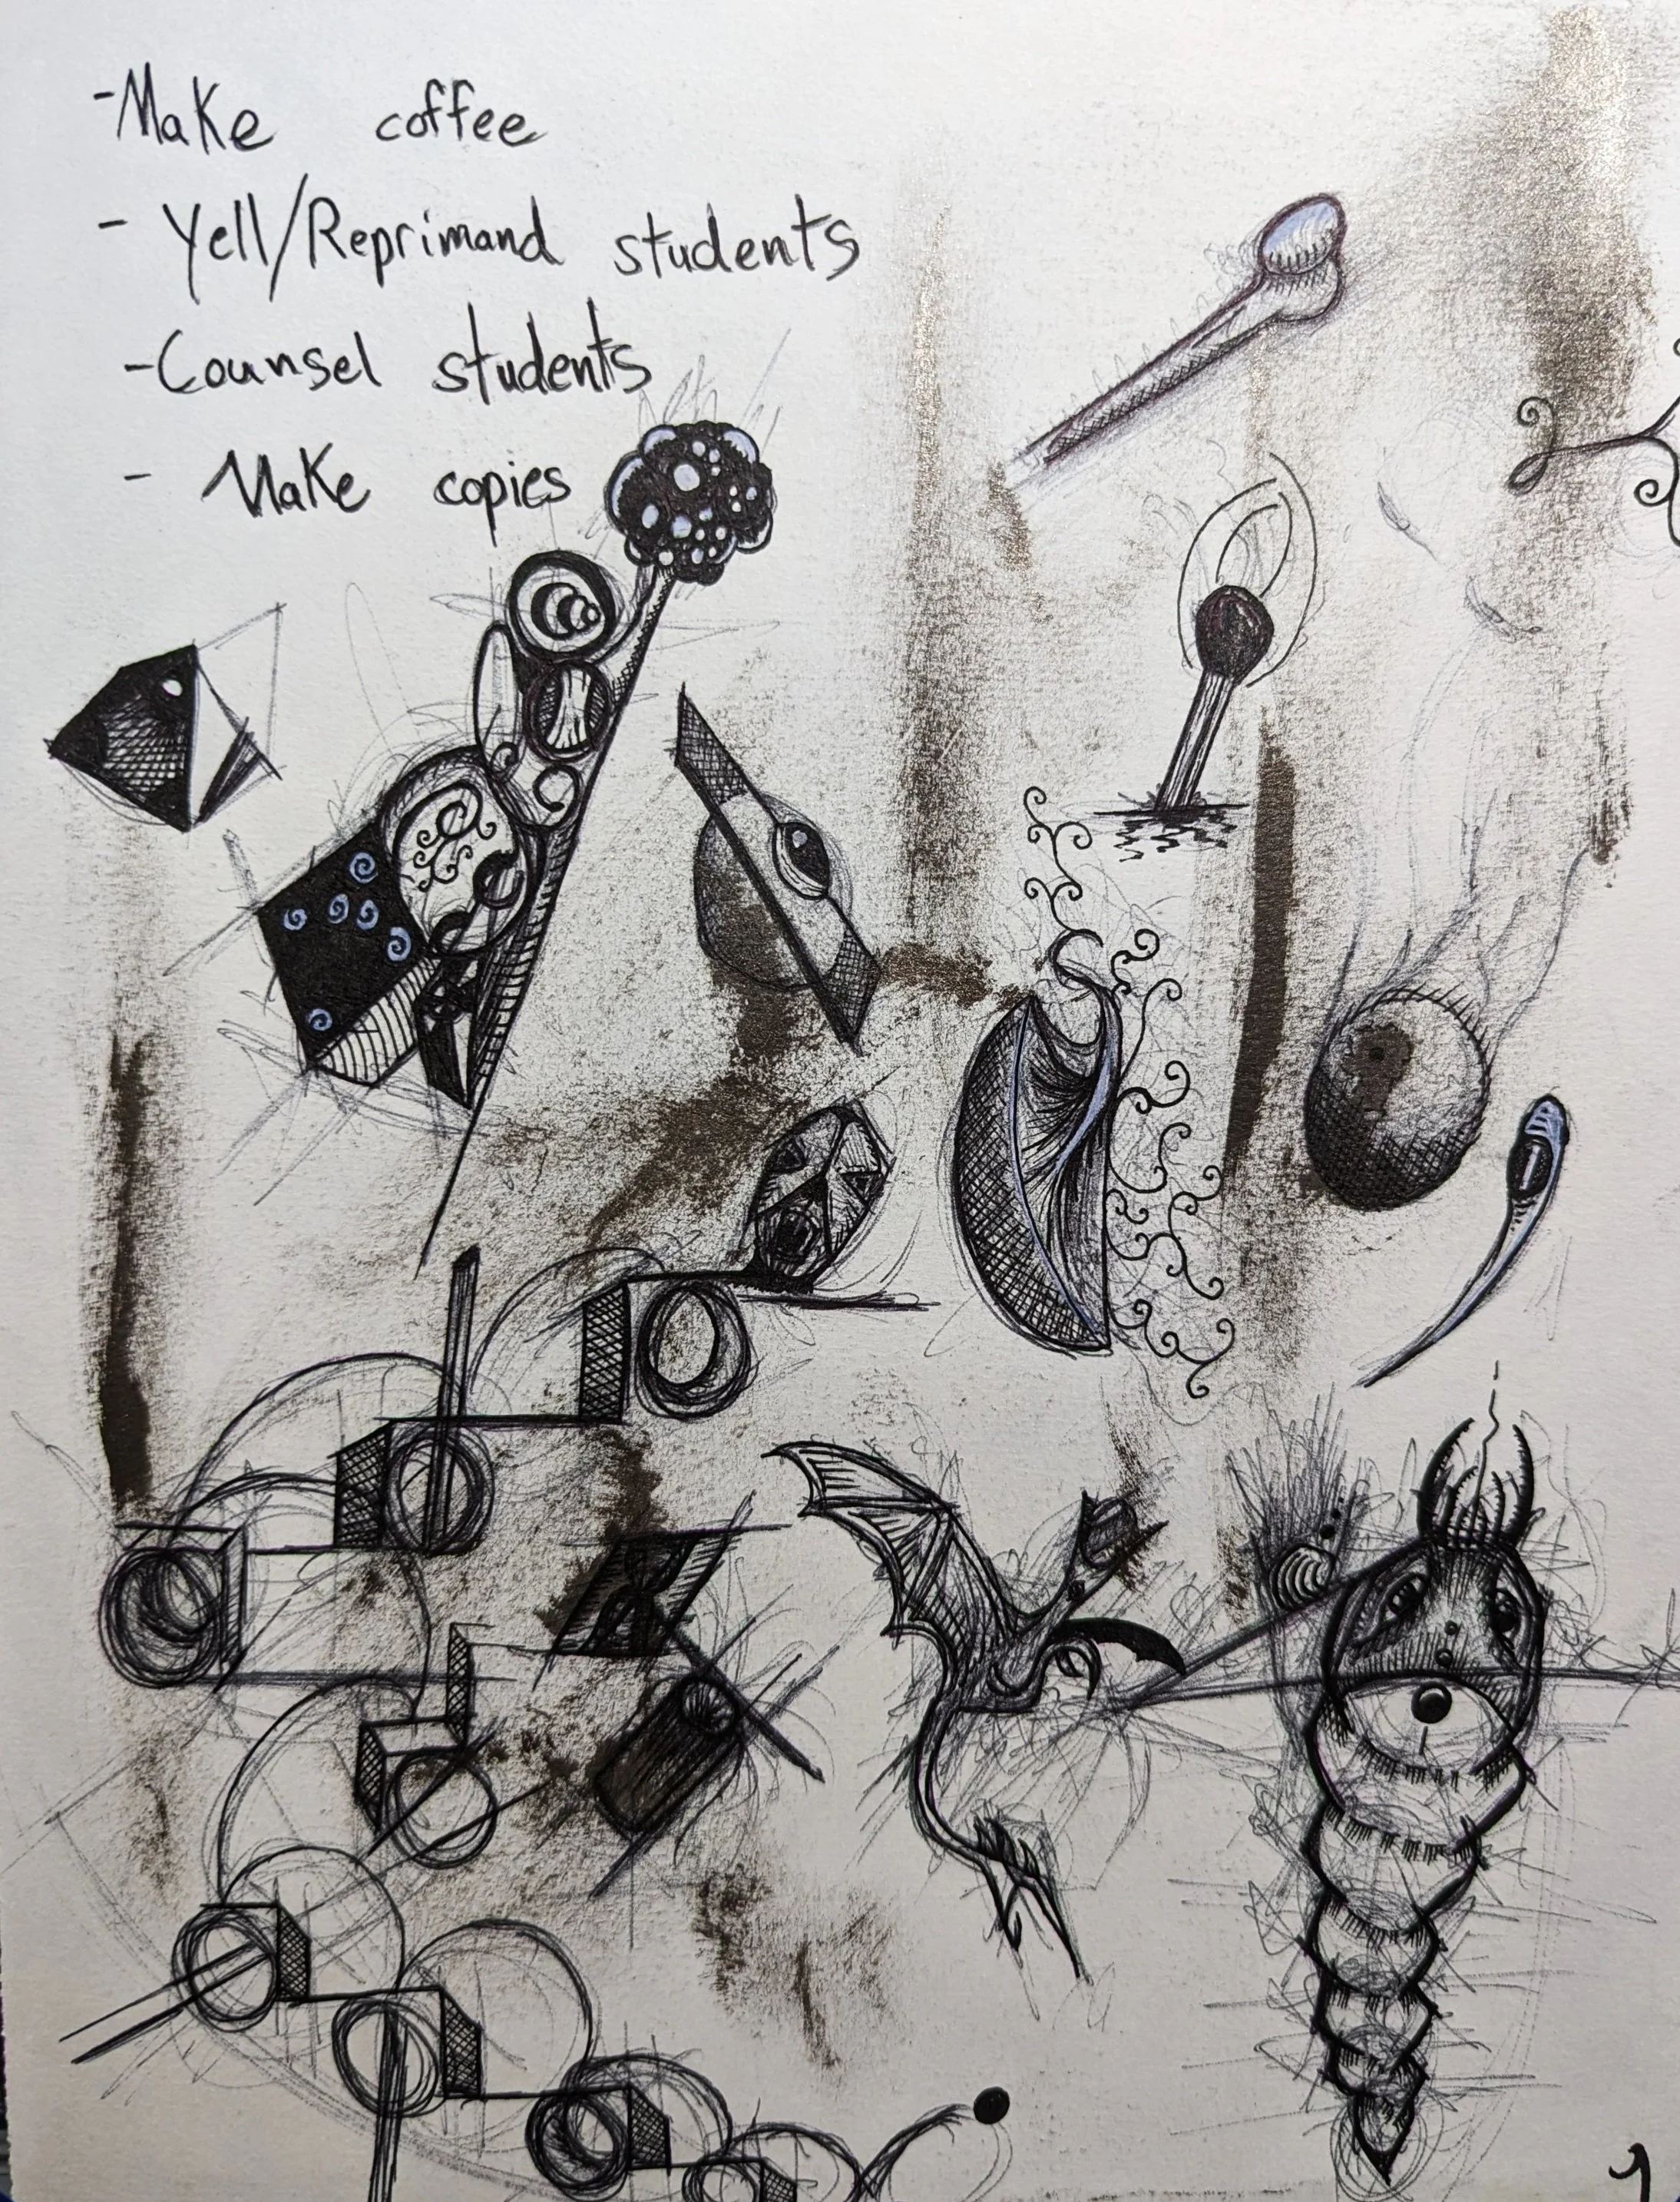 -Make coffee
- Yell/Reprimand students
-Counsel students
- Make copies